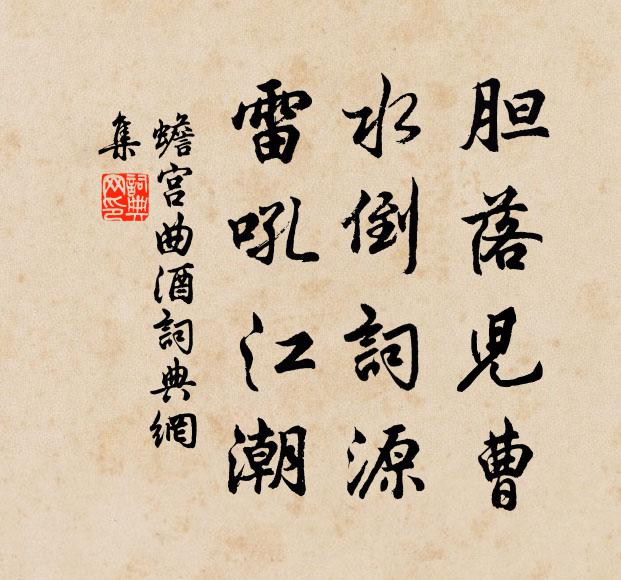 胆落兒曹
水倒詞源
雷吼江潮
蟾宫曲酒詞典網
集
詞典
网印